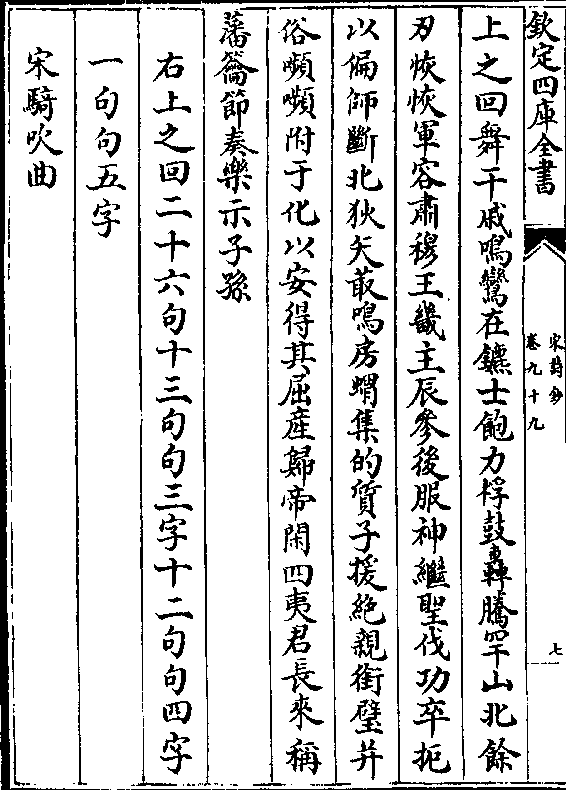 欽定四庫全書
宋詩鈔
卷九十九
七
上之回舞干戚鳴鸞在鑣士飽力桴鼓轟騰罕山北餘
刃恢恢軍容肅穆王畿主辰參後服神繼聖伐功卒扼
以偏師斷北狄矢菆鳴房蝟集的質子援絶親銜璧并
俗嚬嚬附于化以安得其屈産歸帝閑四夷君長來稱
藩籥節奏樂示子孫
右上之回二十六句十三句句三字十二句句四字
一句句五字
宋騎吹曲